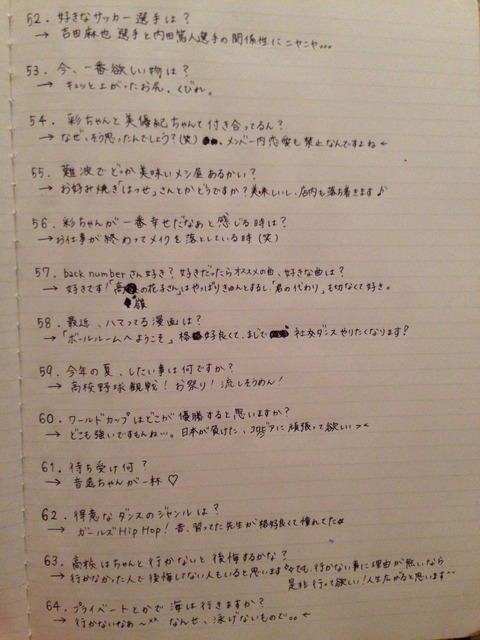 52. 好きなサッカー選手は？
→ 吉田麻也選手と内田篤人選手の関係性にニヤニヤ...
53. 今、一番欲しい物は？
→ キュッと上がったお尻。くびれ。
54. 彩ちゃんと美優紀ちゃんて付き合ってるん？
→ なぜ、そう思ったんでしょう？(笑) メンバー内恋愛も禁止なんですよね
55. 難波でどっか美味いメン屋あるかい？
→ お好み焼き「はっせ」さんとかどうですか？美味しいし、店内も落ち着きます♪
56. 彩ちゃんが一番幸せだなぁと感じる時は？
→ お仕事が終わってメイクを落としている時(笑)
57. back numberさん好き？好きだったらオススメの曲、好きな曲は？
→ 好きです！「高嶺の花子さん」はやっぱりきゅんとするし、「君の代わり」も切なくて好き。
58. 最近、ハマってる漫画は？
→ 「ボールルームへようこそ」格好良くて、まじで社交ダンスやりたくなります？
59. 今年の夏、したい事は何ですか？
→ 高校野球観戦！お祭り！流しそうめん！
60. ワールドカップはどこが優勝すると思いますか？
→ どこも強いですもんね...。日本が負けた、コロンビアに頑張って欲しい
61. 待ち受け何？
→ 音遠ちゃんが一杯♡
62. 得意なダンスのジャンルは？
→ ガールズHip Hop！昔、習ってた先生が格好良くて憧れてた
63. 高校はちゃんと行かないと後悔するかな？
→ 行かなかった人で後悔してない人もいると思います でも、行かない事に理由が無いなら
是非行って欲しい！人生広がると思います
64. プライベートとかで海は行きますか？
→ 行かないなぁ〜 なんせ、泳げないもので。。